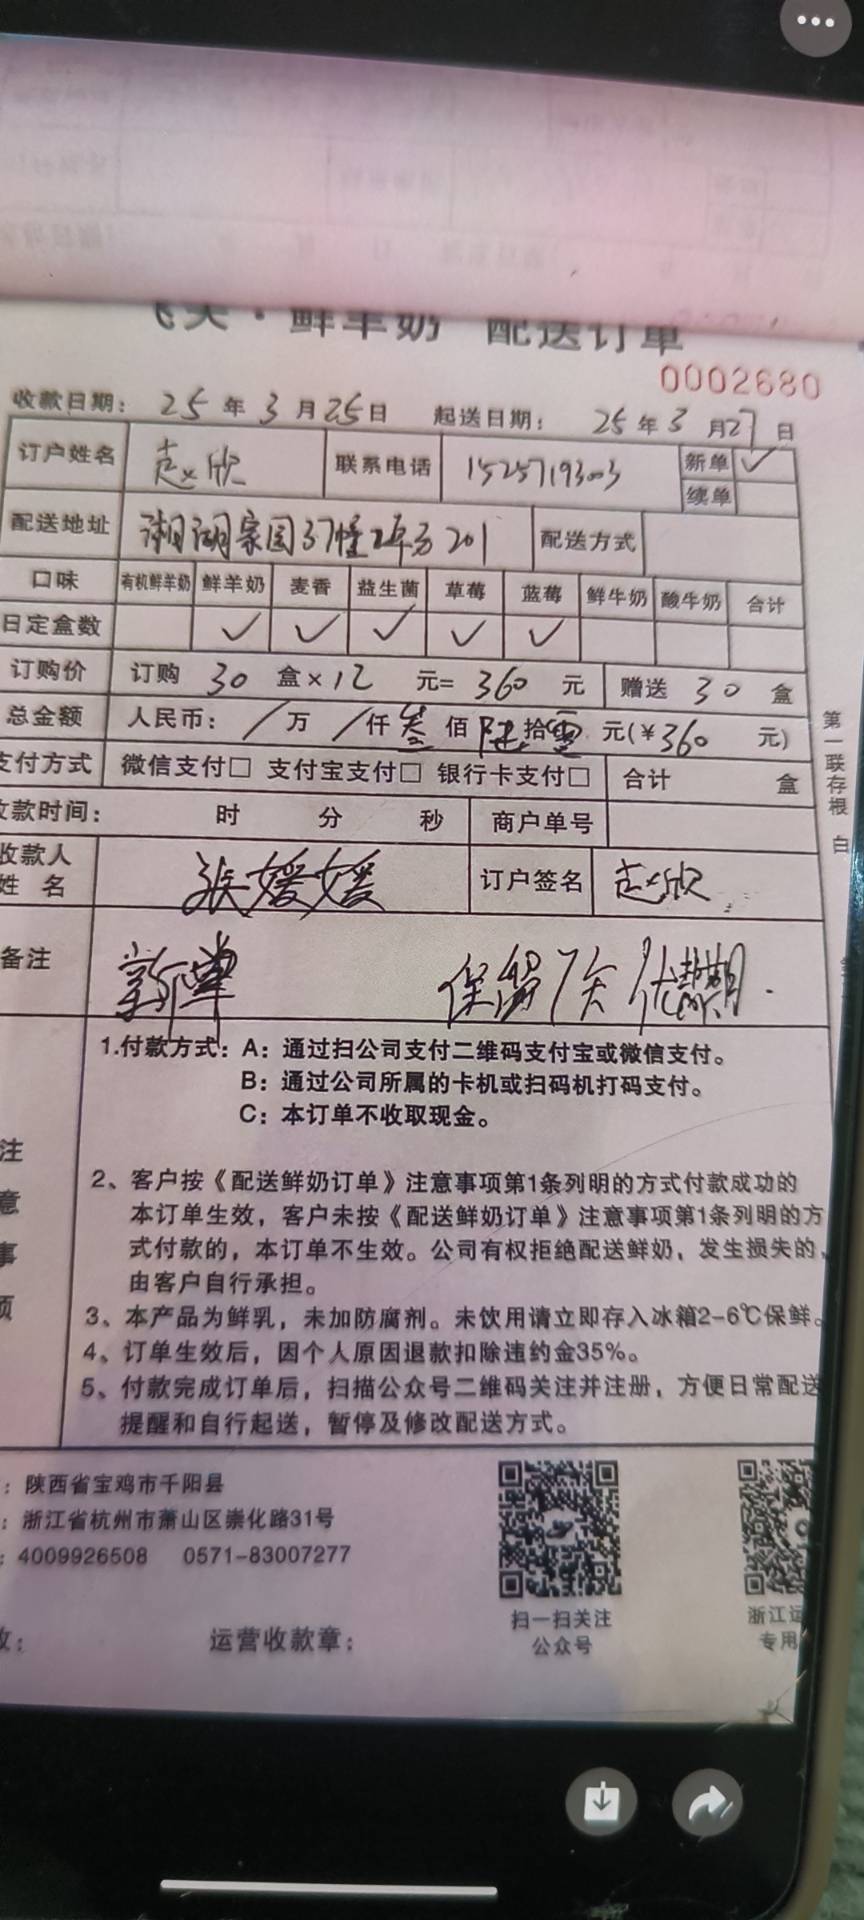 飞天·鲜羊奶 配送订单
0002680
收款日期： 25 年 3 月 25 日 起送日期： 25 年 3 月 27 日
订户姓名 赵欣 联系电话 15257193003 新单 ✓
续单
配送地址 湘湖家园37幢2单元201 配送方式
口味 有机鲜羊奶 鲜羊奶 麦香 益生菌 草莓 蓝莓 鲜牛奶 酸牛奶 合计
日定盒数 ✓ ✓ ✓ ✓ ✓
订购价 订购 30 盒×12 元= 360 元 赠送 30 盒
总金额 人民币： / 万 / 仟 叁 佰 陆 拾 零 元(¥360 元)
支付方式 微信支付□ 支付宝支付□ 银行卡支付□ 合计 盒
收款时间： 时 分 秒 商户单号
收款人
姓 名 张媛媛 订户签名 赵欣
备注 新单 保留7天优惠期.
第一联存根 白
注意事项
1.付款方式：A：通过扫公司支付二维码支付宝或微信支付。
B：通过公司所属的卡机或扫码机打码支付。
C：本订单不收取现金。
2、客户按《配送鲜奶订单》注意事项第1条列明的方式付款成功的
本订单生效，客户未按《配送鲜奶订单》注意事项第1条列明的方
式付款的，本订单不生效。公司有权拒绝配送鲜奶，发生损失的，
由客户自行承担。
3、本产品为鲜乳，未加防腐剂。未饮用请立即存入冰箱2-6℃保鲜。
4、订单生效后，因个人原因退款扣除违约金35%。
5、付款完成订单后，扫描公众号二维码关注并注册，方便日常配送
提醒和自行起送，暂停及修改配送方式。
：陕西省宝鸡市千阳县
：浙江省杭州市萧山区崇化路31号
：4009926508 0571-83007277
扫一扫关注
公众号
浙江运
专用
运营收款章：